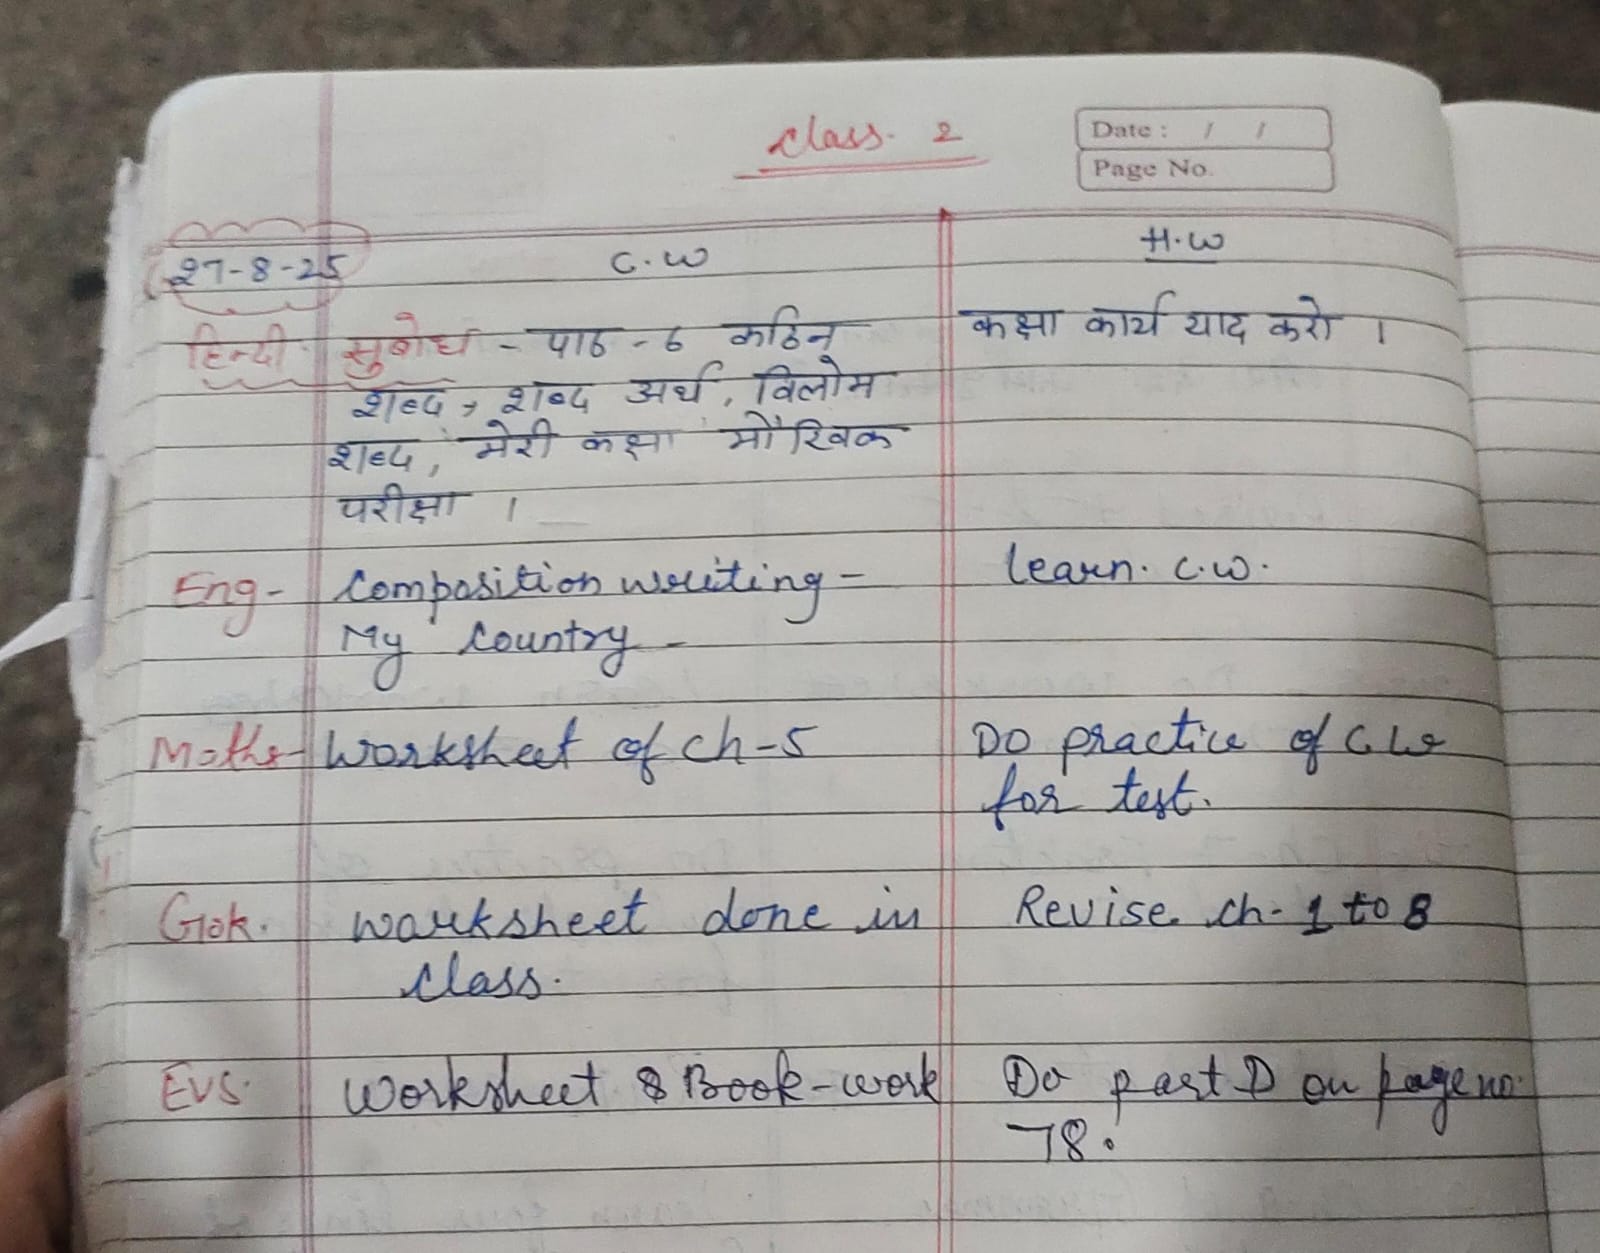 Class. 2
Date : / /
Page No.
27-8-25 C.W H.W
हिन्दी सुबोध - पाठ - 6 कठिन कक्षा कार्य याद करो ।
शब्द, शब्द अर्थ, विलोम
शब्द, मेरी कक्षा मौखिक
परीक्षा ।
Eng- Composition writing- learn. C.W.
My Country-
Maths- Worksheet of Ch-5 Do practice of C.W
for test.
G.k. worksheet done in Revise. ch- 1 to 8
class.
EVS. Worksheet & Book-work Do part D on page no.
78.